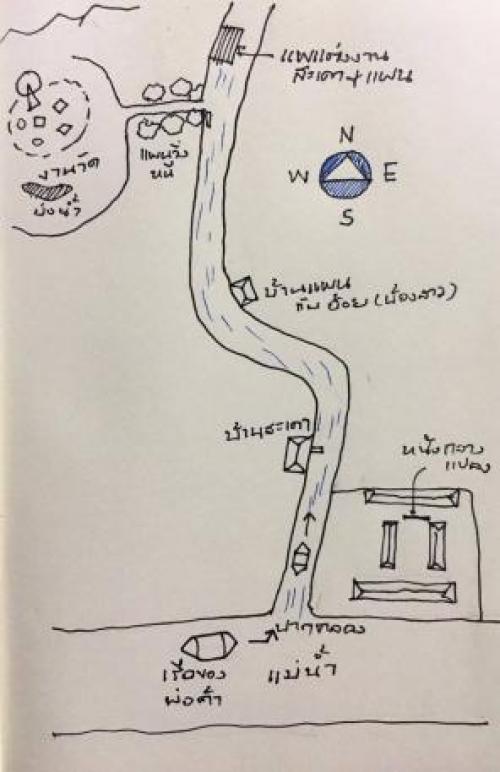 แพแต่งงาน
สะเดา + แฝน
N
W E
S
แฝนวิ่ง
หนี
งานวัด
บ่อน้ำ
บ้านแฝน
กับ อ้อย (น้องสาว)
บ้านสะเดา
หนังกลาง
แปลง
ปากคลอง
เรือของ
พ่อค้า
แม่น้ำ